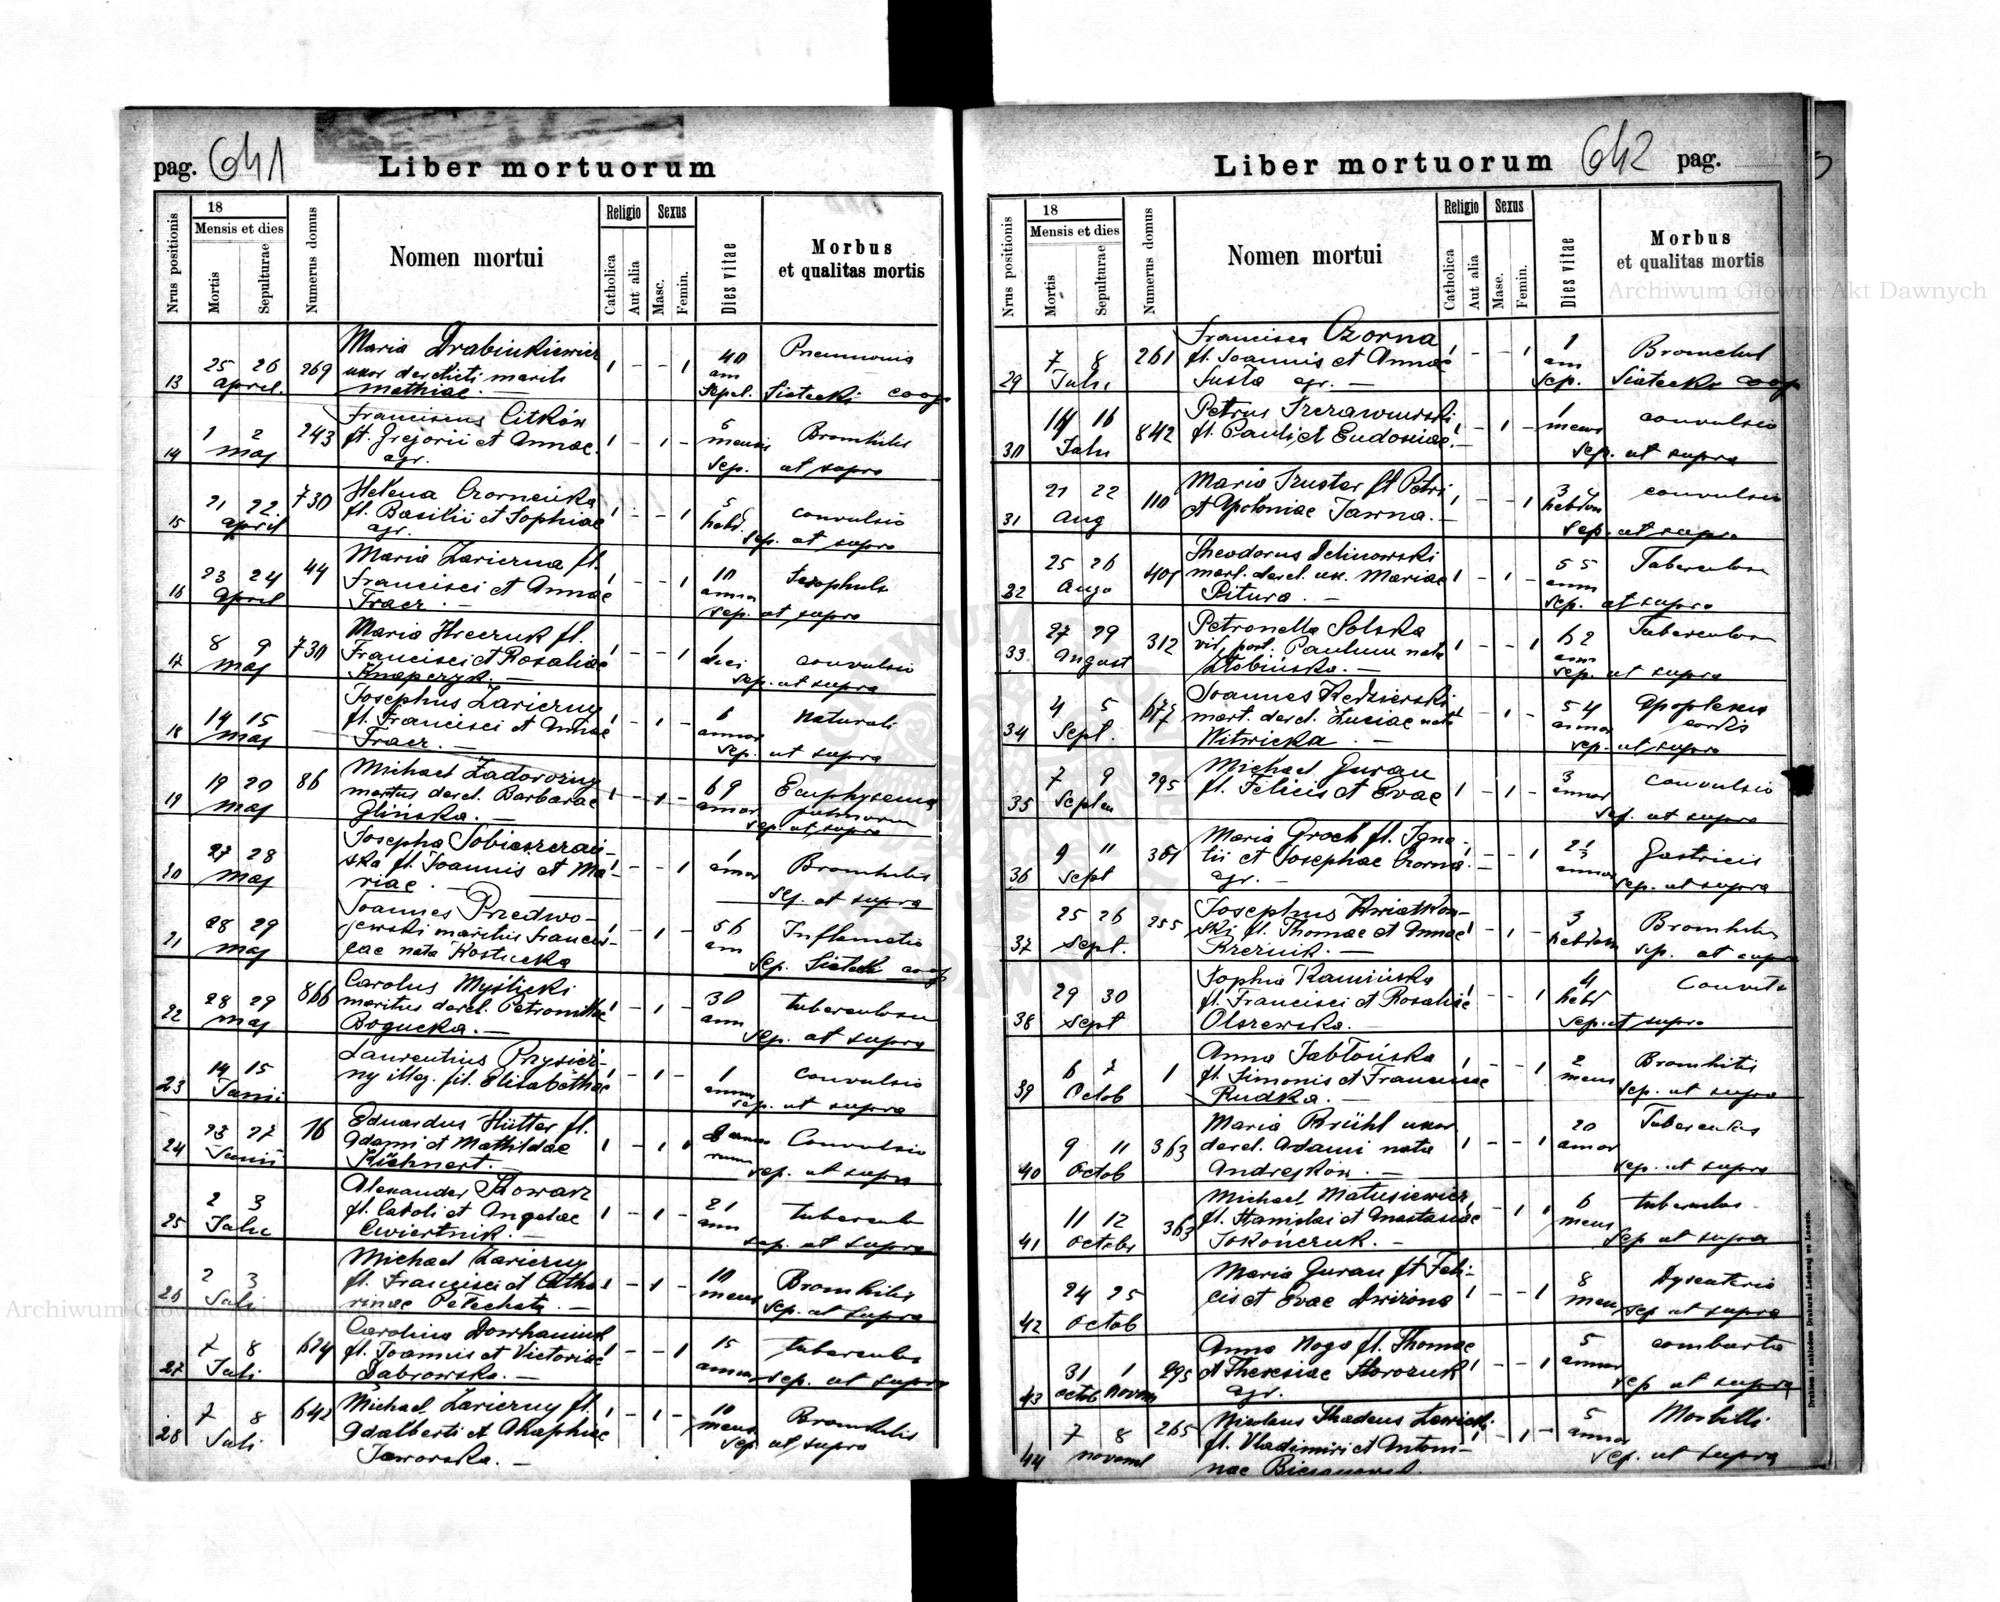 pag. 641 Liber mortuorum
Nrus positionis
18
Mensis et dies
Mortis
Sepulturae
Numerus domus
Nomen mortui
Religio
Catholica
Aut alia
Sexus
Masc.
Femin.
Dies vitae
Morbus
et qualitas mortis
13 25 26 april. 269
Maria Drabinkiewicz
uxor derelicti mariti
Mathiae. —
1 - - 1
40 ann
Pneumonia
Sepel. Siatecki coop
14 1 2 maj 243
Franciscus Citkón
fl. Gregorii et Annae
agr.
1 - 1 -
5 mensis
Bronchitis
sep. ut supra
15 21 22 april 730
Helena Czorneńka
fl. Basilii et Sophiae
agr.
1 - - 1
5 hebd.
convulsio
sep. ut supra
16 23 24 april 44
Maria Zarierna fl.
Francisci et Annae
Tracz. —
1 - - 1
10 annor
sep. ut supra
17 8 9 maj 730
Maria Hreczuk fl.
Francisci et Rosaliae
Knapczyk. —
1 - - 1
1 diei
convulsio
sep. ut supra
18 14 15 maj
Josephus Zarierny
fl. Francisci et Annae
Tracz. —
1 - 1 -
6 annor
naturali
sep. ut supra
19 19 20 maj 86
Michael Zadorozny
maritus derel. Barbarae
Glińska. —
1 - 1 -
69 annor
Emphysema
pulmorum
sep. ut supra
20 27 28 maj
Josepha Tobieszczań-
ska fl. Joannis et Ma-
riae. —
1 - - 1
1 annor
Bronchitis
sep. ut supra
21 28 29 maj
Joannes Przedwo-
jewski maritus Francis-
cae nata Kostecka
1 - 1 -
56 ann
Inflamatio
Sep. Siatecki coop
22 28 29 maj 866
Carolus Myślicki
maritus derel. Petronellae
Bogucka. —
1 - 1 -
30 ann
tuberculosa
sep. ut supra
23 14 15 Junii
Laurentius Przysież-
ny illeg. fil. Elisabethae
1 - 1 -
1 annor
convulsio
sep. ut supra
24 23 27 Junii 16
Eduardus Hütter fl.
Adami et Mathildae
Kühnert. —
1 - 1
Convulsio
sep. ut supra
25 2 3 Julii
Alexander Słowarz
fl. Caroli et Angelae
Cwiertnik. —
1 - 1 -
21 ann
tubercul
sep. ut supra
26 2 3 Juli
Michael Zarierny
fl. Francisci et Catha-
rinae Petechaty. —
1 - 1 -
10 mens
Bronchitis
sep. ut supra
27 7 8 Juli 624
Carolina Dowhaniuk
fl. Joannis et Victoriae
Dabrowska. —
1 - - 1
15 annor
tuberculos
sep. ut supra
28 7 8 Juli 642
Michael Zarierny fl.
Adalberti et Ahaphiae
Jaworska. —
1 - 1 -
10 mens
Bronchitis
sep. ut supra
Liber mortuorum 642 pag.
Nrus positionis
18
Mensis et dies
Mortis
Sepulturae
Numerus domus
Nomen mortui
Religio
Catholica
Aut alia
Sexus
Masc.
Femin.
Dies vitae
Morbus
et qualitas mortis
29 7 8 Juli 261
Francisca Czorna
fl. Joannis et Annae
Susta agr. —
1 - - 1
1 ann
Bronchit
sep. Siatecki coop
30 14 16 Juli 842
Petrus Trzrawiewski
fl. Pauli et Eudoxiae. —
1 - 1 -
1 mens
convulsio
sep. ut supra
31 21 22 Aug 110
Maria Truster fl Petri
et Apoloniae Tarna. —
1 - - 1
3 hebdom
convulsio
sep. ut supra
32 25 26 Augo 405
Theodorus Delinowski
marl. derel. ux. Mariae
Pitura. —
1 - 1 -
55 ann
Tuberculosa
sep. ut supra
33 27 29 August 312
Petronella Solska
vid. post. Paulum nata
Złobińska. —
1 - - 1
62 ann
Tuberculosa
sep. ut supra
34 4 5 Sept.
Joannes Kędzierski
mart. derel. Luciae nata
Witwicka. —
1 - 1 -
54 annor
apoplexia
cordis
sep. ut supra
35 7 9 Septem 295
Michael Guran
fl. Felicis et Evae
1 - 1 -
3 annor
convulsio
sep. ut supra
36 9 11 Sept 361
Maria Groch fl. Igna-
tii et Josephae Czorna.
agr. —
1 - - 1
annor
Gastricis
sep. ut supra
37 25 26 Sept. 255
Josephus Kwiatkow-
ski fl. Thomae et Annae
Krzeznik. —
1 - 1 -
3 hebdom
Bronchitis
sep. ut supra
38 29 30 Sept
Sophia Kamińska
fl. Francisci et Rosaliae
Olszewska. —
1 - - 1
4 hebd
Convuls
sep. ut supra
39 6 7 Octob 1
Anna Jabłońska
fl. Simonis et Franciscae
Rudka. —
1 - - 1
2 mens
Bronchitis
sep. ut supra
40 9 11 Octob 363
Maria Brühl uxor
derel. Adami nata
Andrejków. —
1 - - 1
20 annor
Tuberculos
sep. ut supra
41 11 12 Octobr 363
Michael Matusiewicz
fl. Stanislai et Anastasiae
Tokończuk. —
1 - 1
6 mens
tuberculos
sep ut supra
42 24 25 Octob
Maria Guran fl Feli-
cis et Evae Dwizona
1 - - 1
8 mens
Dysenteria
sep ut supra
43 31 Octob 1 Novem 295
Anna Noga fl. Thomae
et Theresiae Horoszuk
agr.
1 - - 1
5 annor
combusta
sep ut supra
44 7 8 novemb 265
Nicolaus Thadeus Lewicki
fl. Vladimiri et Antoni-
nae
1 - 1 -
5 annor
Morbilli
sep. ut supra
Archiwum Główne Akt Dawnych
Archiwum Główne Akt Dawnych